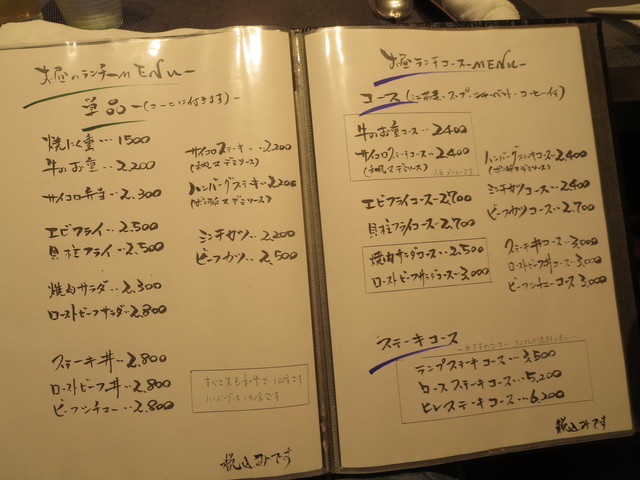 お昼のランチーMENUー
単品ー(コーヒー付きます)ー
焼にく重・・・1500
牛のお重・・2,200
サイコロ弁当・・2,300
エビフライ・・2,500
貝柱フライ・・2,500
焼肉サラダ・・2,300
ローストビーフサラダ・・2,800
ステーキ丼・・2,800
ローストビーフ丼・・2,800
ビーフシチュー・・2,800
サイコロステーキ・・2,200
(和風又デミソース)
ハンバーグステーキ・・2,200
(ポン酢又デミソース)
ミンチカツ・・2,200
ビーフカツ・・2,500
税込みです
お昼ランチコースーMENUー
コース(ミニ前菜・スープ・シャーベット・コーヒー付)
牛のお重コース・・2,400
サイコロステーキコース・・2,400
(和風又デミソース)
エビフライコース・・2,700
貝柱フライコース・・2,700
焼肉サラダコース・・2,500
ローストビーフサラダコース・・3,000
ハンバーグステーキコース・・2,400
(ポン酢又デミソース)
ミンチカツコース・・2,400
ビーフカツコース・・2,700
ステーキ丼コース・・3,000
ローストビーフ丼コース・・3,000
ビーフシチューコース・・3,000
ステーキコース
ランプステーキコース・・・3,500
ロースステーキコース・・・5,200
ヒレステーキコース・・・6,200
税込みです